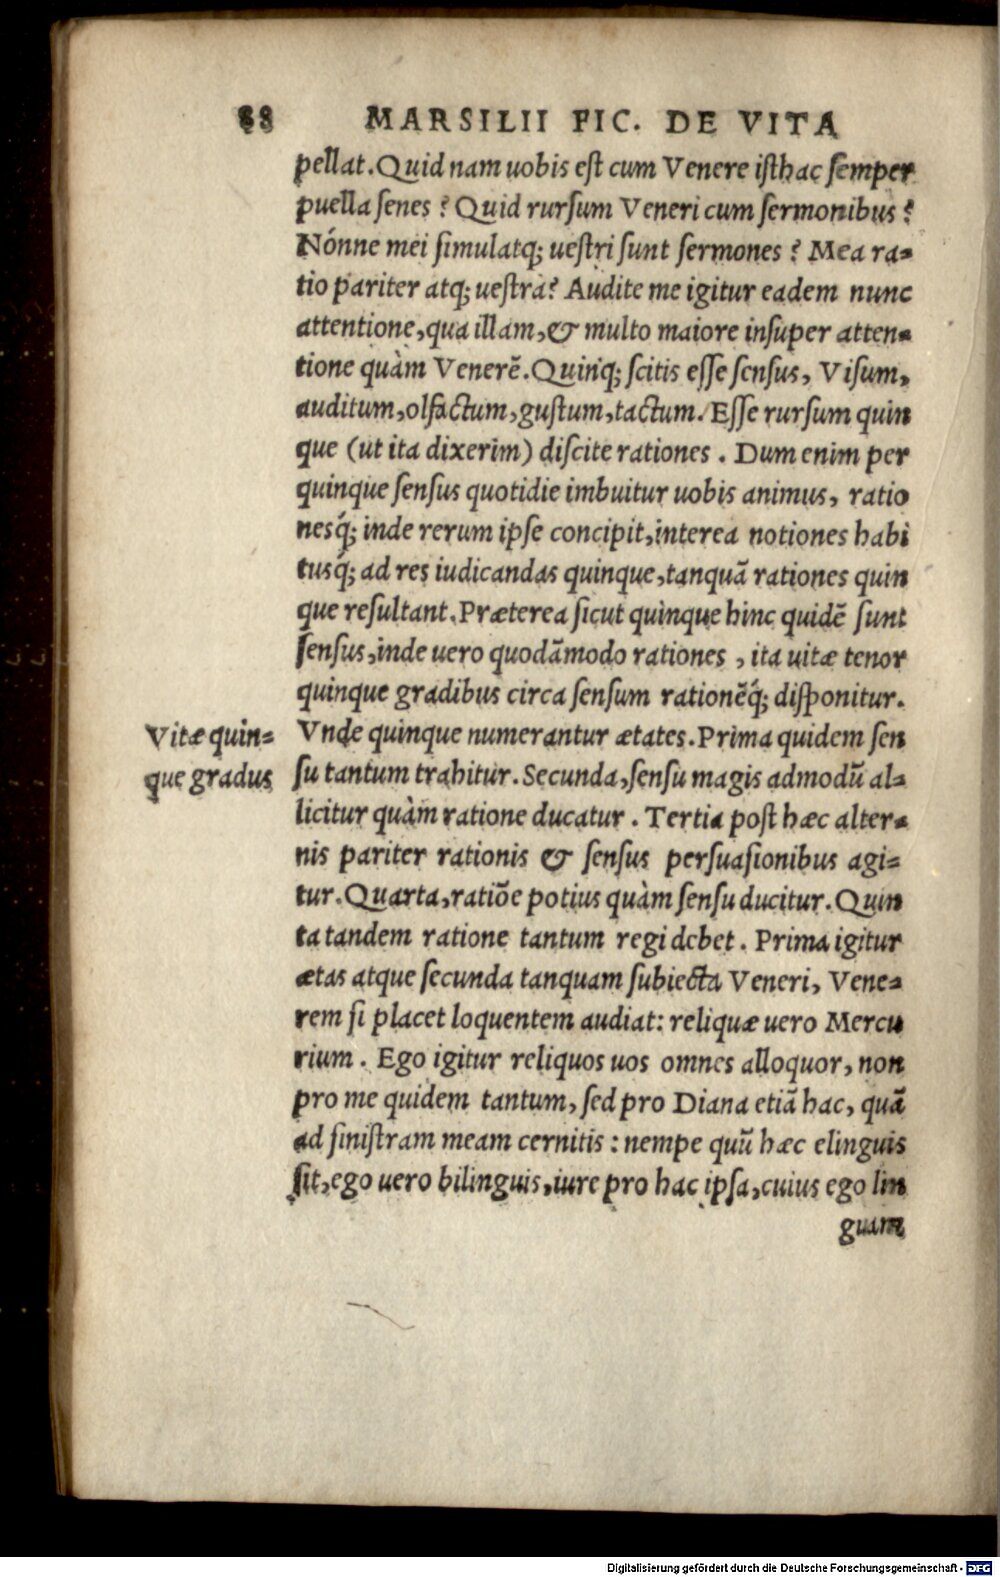 88 MARSILII FIC. DE VITA
pellat. Quid nam uobis est cum Venere isthac semper
puella senes? Quid rursum Veneri cum sermonibus?
Nónne mei simulatq; uestri sunt sermones? Mea ra-
tio pariter atq; uestra? Audite me igitur eadem nunc
attentione, qua illam, & multo maiore insuper atten-
tione quàm Venerē. Quinq; scitis esse sensus, Visum,
auditum, olfactum, gustum, tactum. Esse rursum quin
que (ut ita dixerim) discite rationes. Dum enim per
quinque sensus quotidie imbuitur uobis animus, ratio
nesq́; inde rerum ipse concipit, interea notiones habi
tusq́; ad res iudicandas quinque, tanquā rationes quin
que resultant. Præterea sicut quinque hinc quidē sunt
sensus, inde uero quodāmodo rationes, ita uitæ tenor
quinque gradibus circa sensum rationēq́; disponitur.
Vitæ quin-
que gradus
Vnde quinque numerantur ætates. Prima quidem sen
su tantum trahitur. Secunda, sensu magis admodū al-
licitur quàm ratione ducatur. Tertia post hæc alter-
nis pariter rationis & sensus persuasionibus agi-
tur. Quarta, ratiōe potius quàm sensu ducitur. Quin
ta tandem ratione tantum regi debet. Prima igitur
ætas atque secunda tanquam subiecta Veneri, Vene-
rem si placet loquentem audiat: reliquæ uero Mercu
rium. Ego igitur reliquos uos omnes alloquor, non
pro me quidem tantum, sed pro Diana etiā hac, quā
ad sinistram meam cernitis: nempe quū hæc elinguis
sit, ego uero bilinguis, iure pro hac ipsa, cuius ego lin
guam
Digitalisierung gefördert durch die Deutsche Forschungsgemeinschaft - DFG